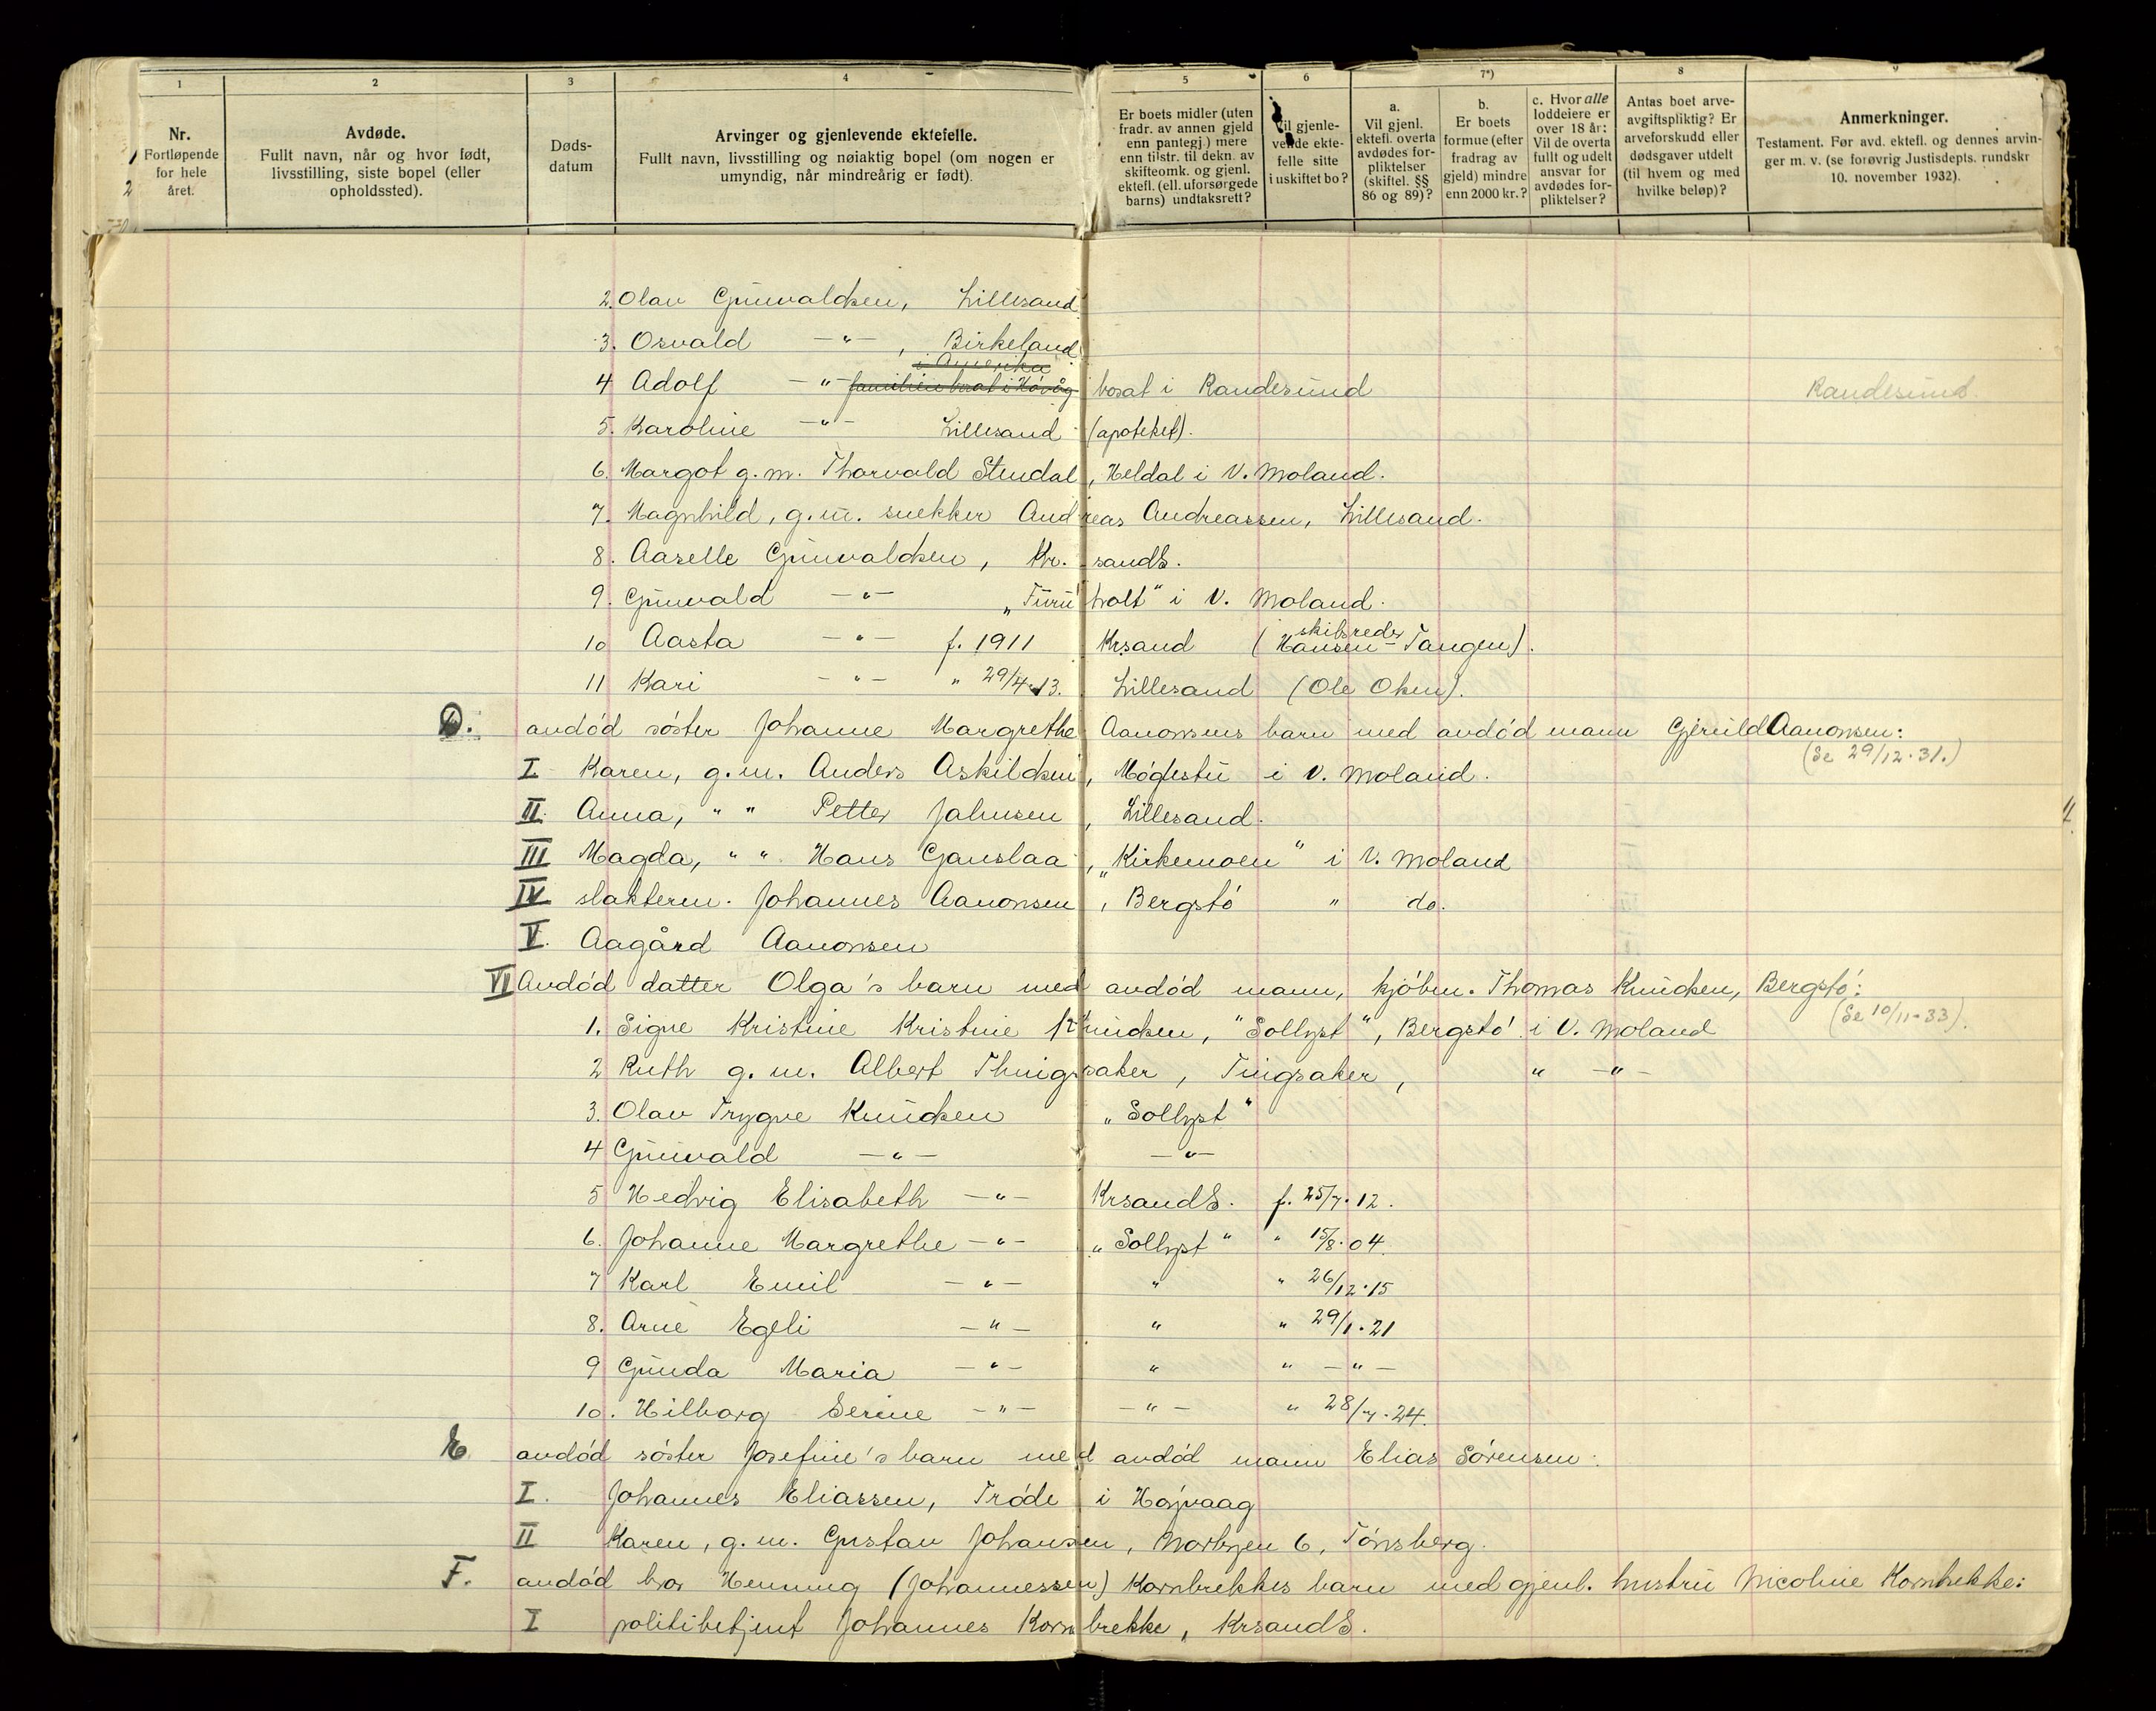 1
2
3
4
5
6
7*)
8
9
Nr.
Fortløpende
for hele
året.
Avdøde.
Fullt navn, når og hvor født,
livsstilling, siste bopel (eller
opholdssted).
Døds-
datum
Arvinger og gjenlevende ektefelle.
Fullt navn, livsstilling og nøiaktig bopel (om nogen er
umyndig, når mindreårig er født).
Er boets midler (uten
fradr. av annen gjeld
enn pantegj.) mere
enn tilstr. til dekn. av
skifteomk. og gjenl.
ektefl. (ell. uforsørgede
barns) undtaksrett?
Vil gjenle-
vende ekte-
felle sitte
i uskiftet bo?
a.
Vil gjenl.
ektefl. overta
avdødes for-
pliktelser
(skiftel. §§
86 og 89)?
b.
Er boets
formue (efter
fradrag av
gjeld) mindre
enn 2000 kr.?
c. Hvor alle
loddeiere er
over 18 år:
Vil de overta
fullt og udelt
ansvar for
avdødes for-
pliktelser?
Antas boet arve-
avgiftspliktig? Er
arveforskudd eller
dødsgaver utdelt
(til hvem og med
hvilke beløp)?
Anmerkninger.
Testament. Før avd. ektefl. og dennes arvin-
ger m. v. (se forøvrig Justisdepts. rundskr
10. november 1932).
2. Olav Gunvaldsen, Lillesand
3. Osvald —"— , Birkeland
i Amerika
4 Adolf —"— familien bosat i Høvåg bosat i Randesund Randesund.
5. Karoline —"— Lillesand (apoteket).
6. Margot g.m. Thorvald Stendal, Heldal i V. Moland.
7. Magnhild, g.m. snekker Andreas Andreassen, Lillesand.
8. Aaselle Gunvaldsen, Kr.sandS.
9. Gunvald —"— „Furuholt" i V. Moland.
10 Aasta —"— f. 1911 Krsand (skibsreder Hansen-Tangen).
11 Kari —"— " 29/4.13. Lillesand (Ole Olsen).
D. avdød søster Johanne Margrethe Aanonsens barn med avdød mann Gjeruld Aanonsen:
(Se 29/12.31.)
I Karen, g.m. Anders Askildsen, Møglestu i V. Moland.
II. Anna, " " Petter Jahnsen, Lillesand.
III Magda, " " Hans Gauslaa, „Kirkemoen" i V. Moland
IV slakterm. Johannes Aanonsen, Bergstø " do.
V. Aagård Aanonsen
VI Avdød datter Olga's barn med avdød mann, kjøbm. Thomas Knudsen, Bergstø:
(Se 10/11-33).
1. Signe Kristine Kristine Knudsen, "Sollyst", Bergstø i V. Moland
2 Ruth g.m. Albert Thingsaker, Tingsaker, " —"—
3. Olav Trygve Knudsen „Sollyst"
4 Gunvald —"— —"—
5 Hedvig Elisabeth —"— KrsandS. f. 25/7.12.
6. Johanne Margrethe —"— „Sollyst" " 15/8.04.
7 Karl Emil —"— " " 26/12.15
8. Arne Egeli —"— " " 29/1.21
9 Gunda Maria —"— " " —"—
10. Hilborg Serine —"— —"— " 28/7.24.
E. avdød søster Josefine's barn med avdød mann Elias Sørensen:
I. Johannes Eliassen, Trøde i Høvaag
II Karen, g.m. Gustav Johansen, Norbyen 6, Tønsberg.
F. avdød bror Henning (Johannessen) Kornbrekkes barn med gjenl. hustru Nicoline Kornbrekke:
I politibetjent Johannes Kornbrekke, KrsandS.